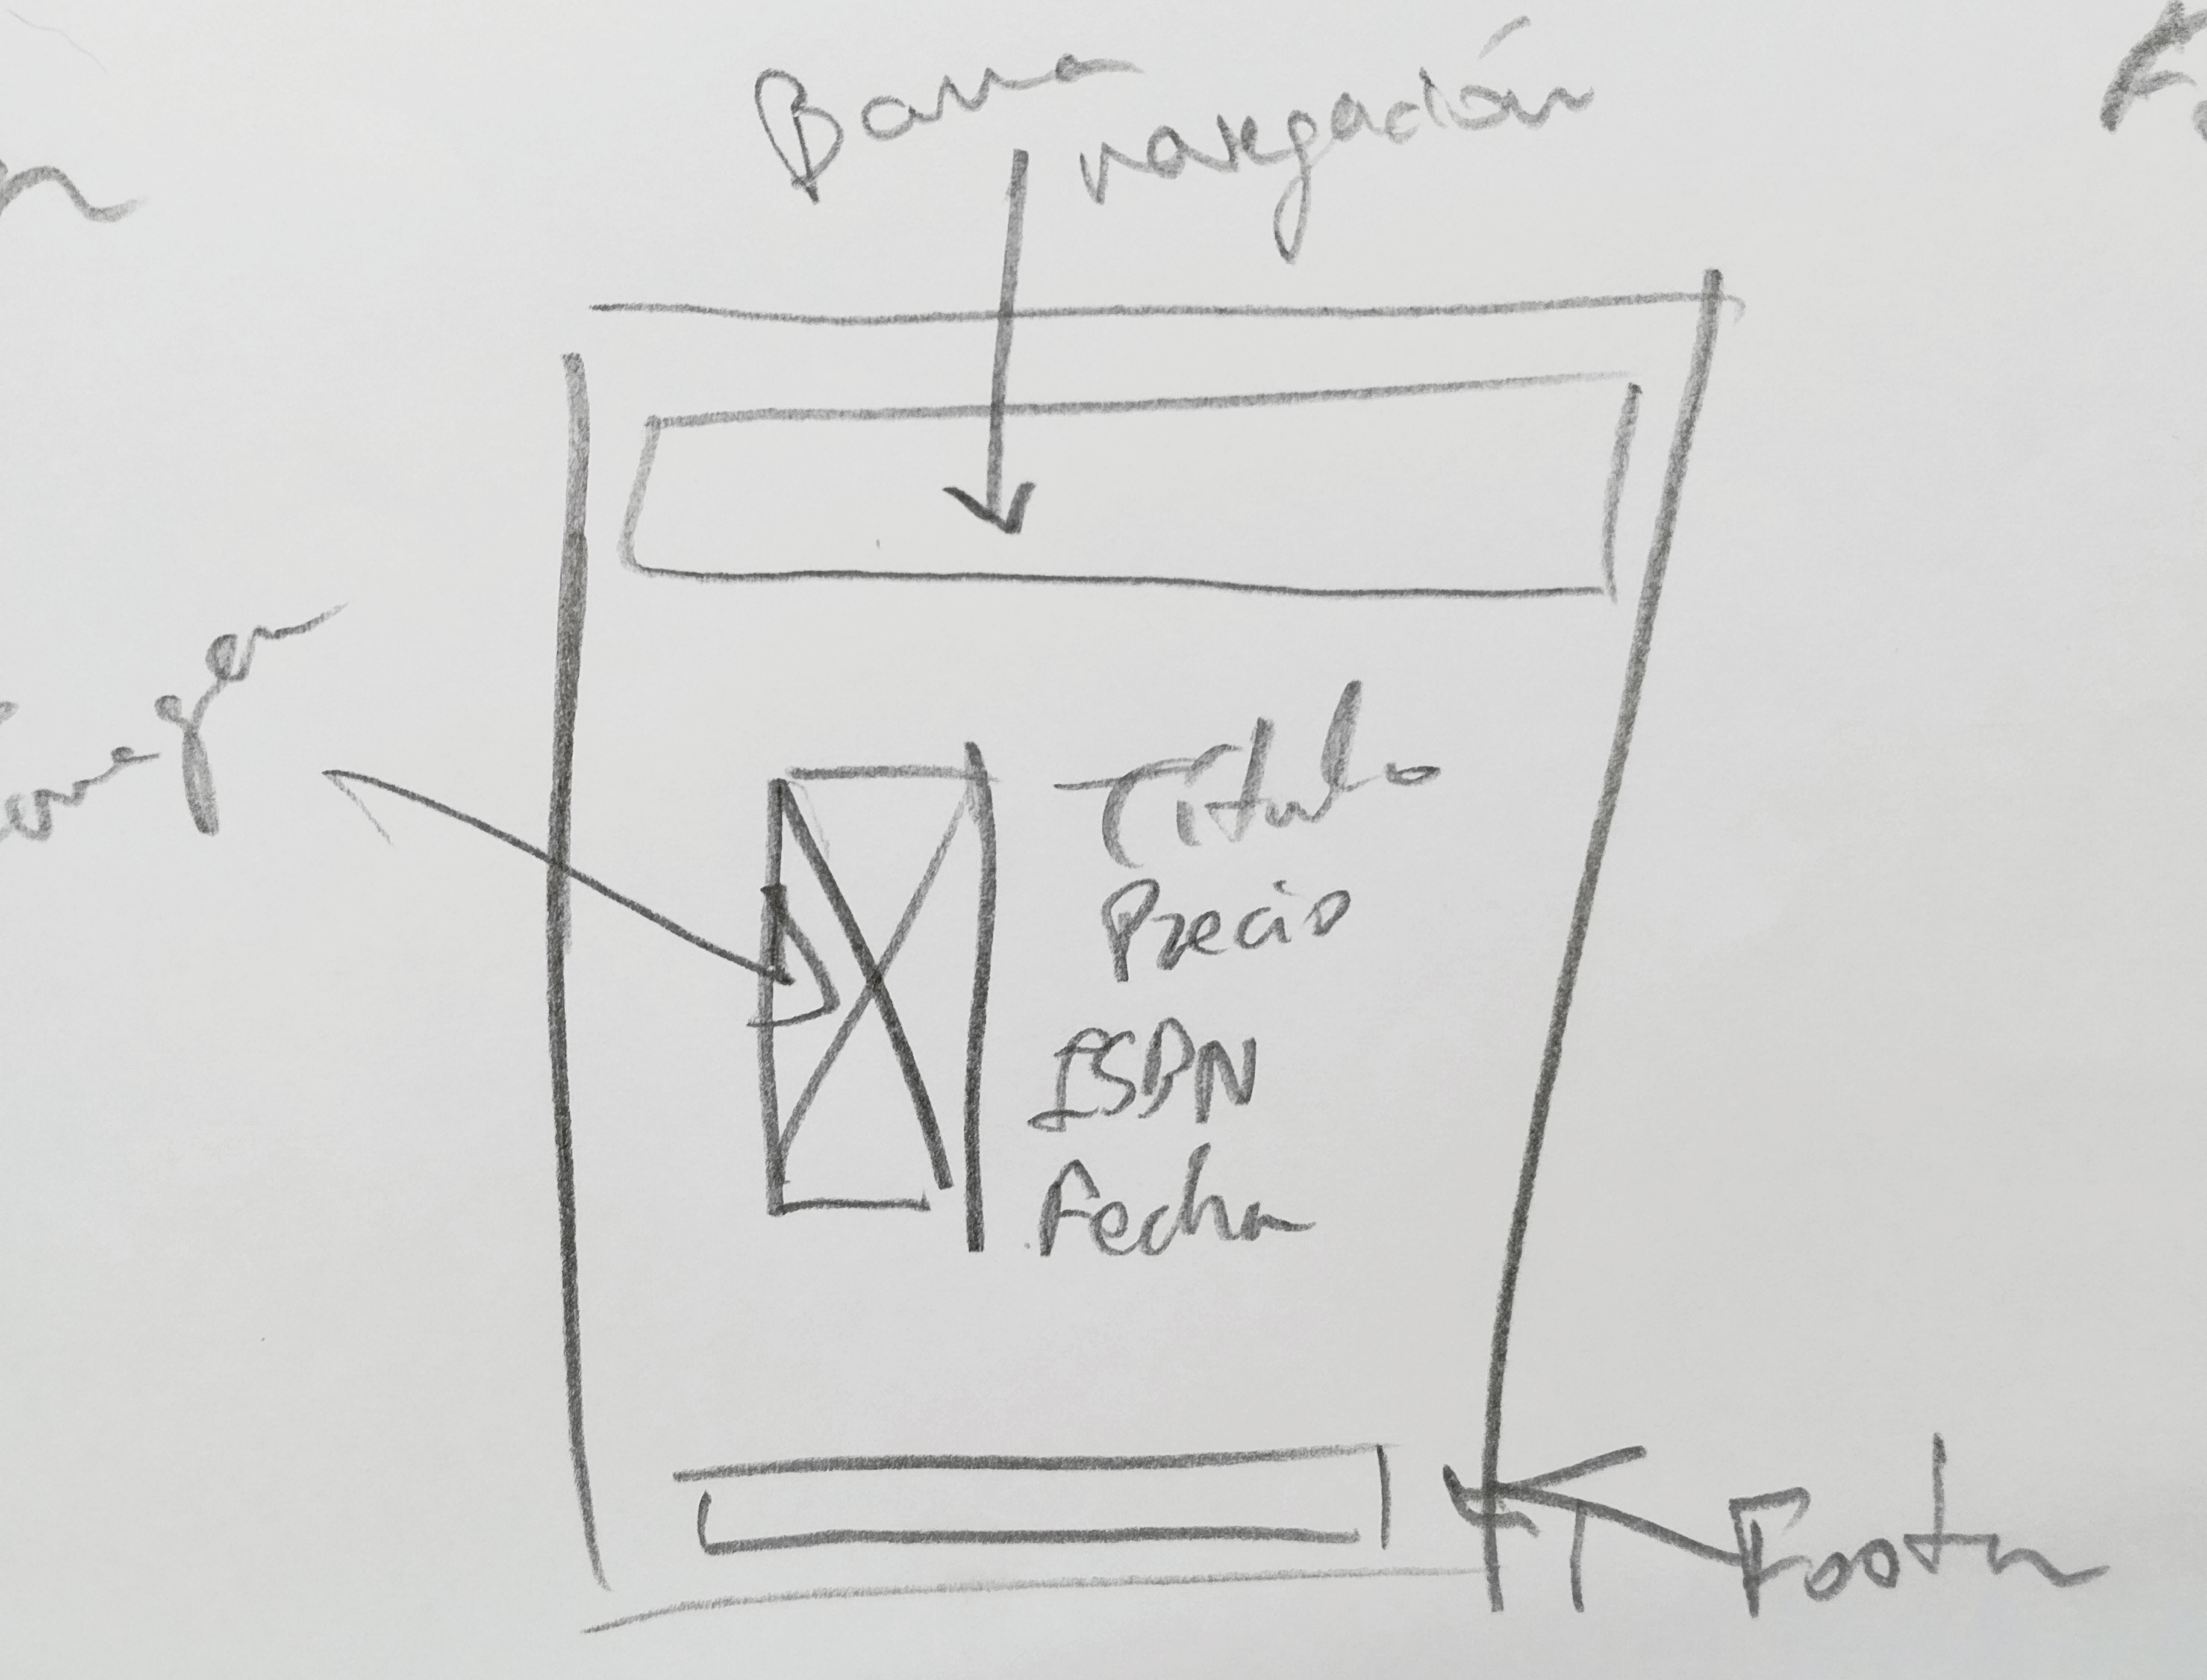 Barra
navegación
Imagen
Título
Precio
ISBN
Fecha
Footer